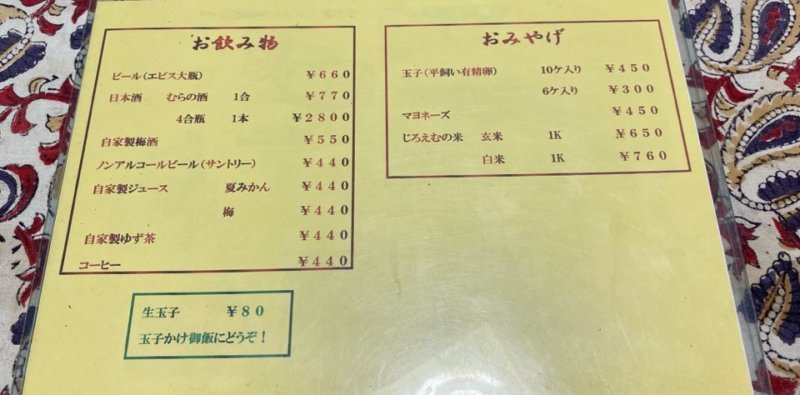 お飲み物
ビール(エビス大瓶) ¥660
日本酒 むらの酒 1合 ¥770
4合瓶 1本 ¥2800
自家製梅酒 ¥550
ノンアルコールビール(サントリー) ¥440
自家製ジュース 夏みかん ¥440
梅 ¥440
自家製ゆず茶 ¥440
コーヒー ¥440
生玉子 ¥80
玉子かけ御飯にどうぞ!
おみやげ
玉子(平飼い有精卵) 10ケ入り ¥450
6ケ入り ¥300
マヨネーズ ¥450
じろえむの米 玄米 1K ¥650
白米 1K ¥760